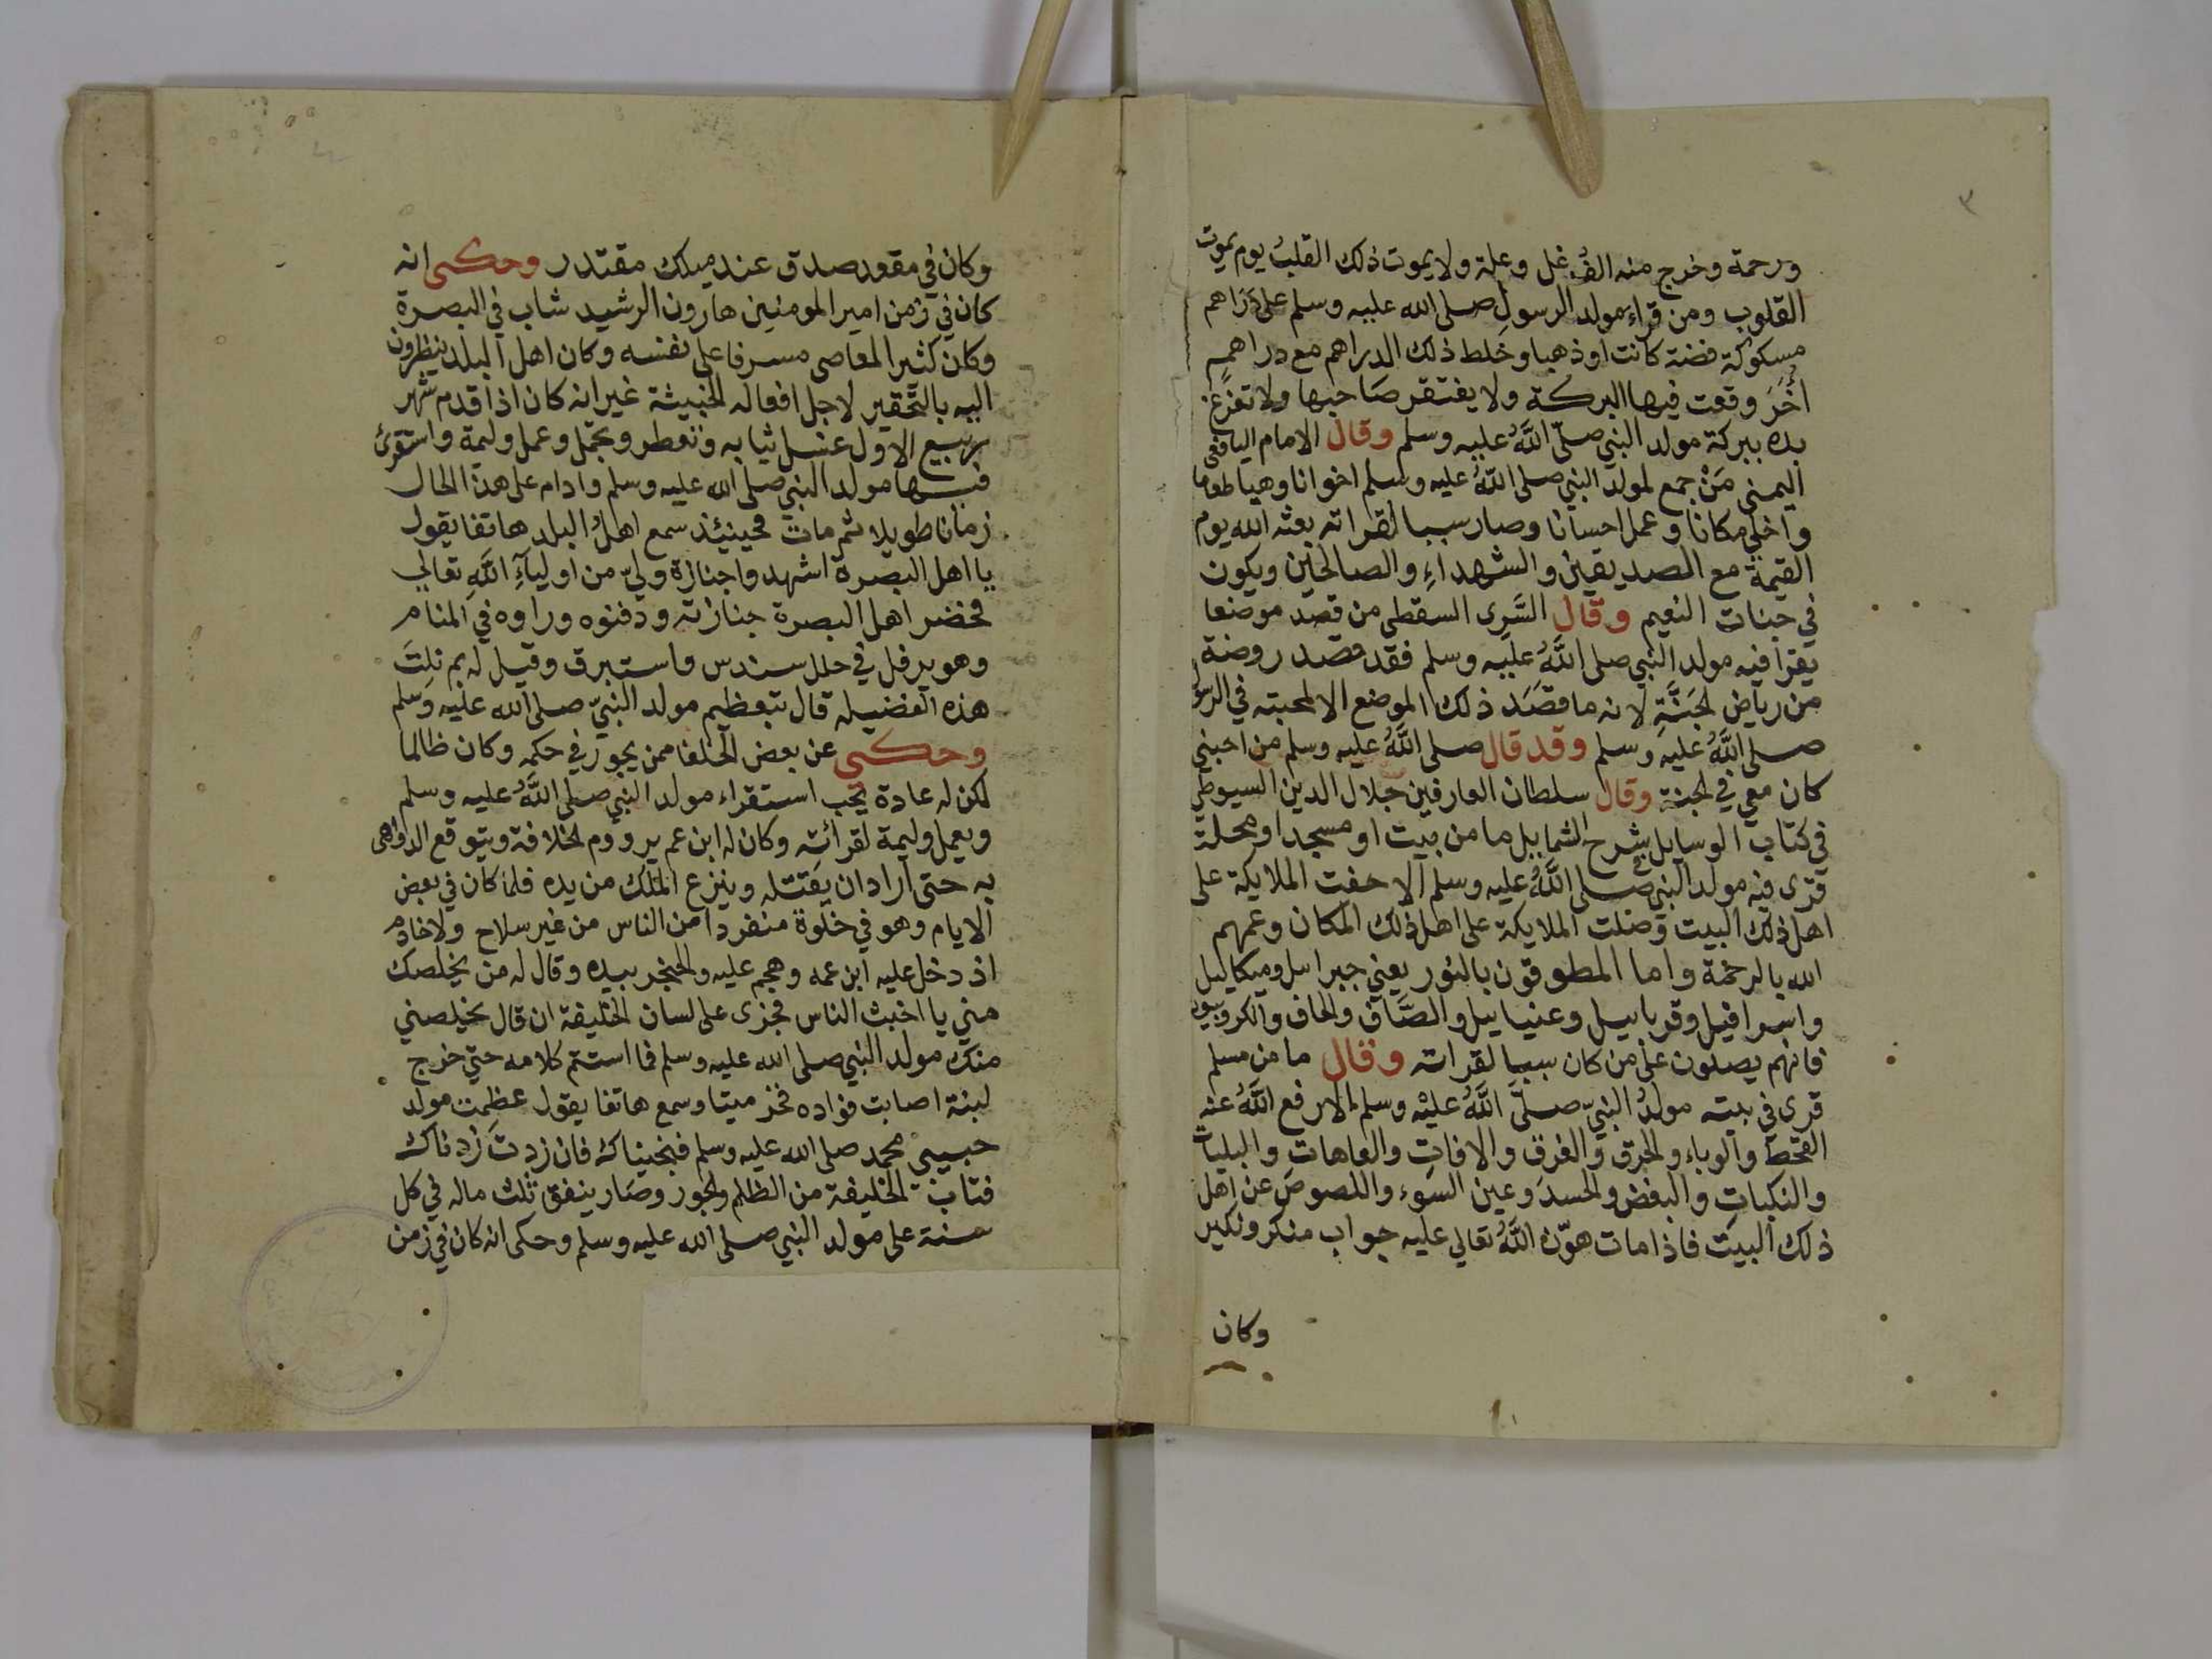 ٣
ورحمة وخرج منه الف غل وعلة ولا يموت ذلك القلبُ يوم يموت
القلوب ومن قراء مولد الرسول صلى الله عليه وسلم على دَرَاهم
مسكوكة فضة كانت اوذهبا وخلط ذلك الدراهم مع دراهم
اُخَرَ وقعت فيها البركة ولا يفتقر صَاحبها ولا تفرغ
يده ببركة مولد النبي صلّى اللَّهُ عليه وسلم وقال الامام اليافعى
اليمنى مَنْ جمع لمولد النبي صلى اللَّهُ عليه وسلم اخوانا وهيا طعاما
واخلى مكانا وعمل احسانا وصار سببا لقراته بعثه الله يوم
القيمة مع الصديقين والشهداءِ والصالحين ويكون
في جنات النعيم وقال السَّرى السقطى من قصد موضعا
يقرا فيه مولد النبي صلى اللَّهُ عليه وسلم فقد قصد روضة
من رياض الجَنَّةِ لانه ما قصَدَ ذلك الموضع الا لمحبته في الرسول
صلى اللَّهُ عليه وسلم وقد قال صلى اللَّهُ عليه وسلم من احبني
كان معي في الجنة وقال سلطان العارفين جلال الدين السيوطي
في كتاب الوسايل بشرح الشمايل ما من بيت او مسجد او محلة
قرى فيه مولد النبي صلى اللَّهُ عليه وسلم الا حفت الملايكة على
اهل ذلك البيت وصلت الملايكة على اهل ذلك المكان وعمهم
الله بالرحمة واما المطوقون بالنور يعني جبراىيل وميكاىيل
واسرافيل وقرباىيل وعنياىيل والصَّاف والحاف والكروبيون
فانهم يصلون على من كان سببا لقراته وقال ما من مسلم
قرى في بيته مولدُ النبيّ صلَّى اللَّهُ عليْه وسلم الا رفع اللَّهُ عنه
القحط والوباء والحرق والغرق والافاتِ والعاهاتِ والبليات
والنكباتِ والبغض والحسدَ وعين السَوء واللصوصَ عن اهل
ذلك البيت فاذا مات هوّن اللَّهُ تعالي عليه جواب منكر ونكير
وكان
وكان في مقعد صدق عند مليك مقتدر وحكى انه
كان في زمن امير المومنين هارون الرشيد شاب في البصرة
وكان كثير المعاصى مسرفا على نفسه وكان اهل البلد ينظرون
اليه بالتحقير لاجل افعاله الخبيثة غير انه كان اذا قدم شهر
ربيع الاول غسل ثيابه وتعطر وتجمل وعمل وليمة واستقرئ
فيها مولد النبي صلى الله عليه وسلم وادام على هذا الحال
زمانا طويلا ثم مات فحينئذ سمع اهلُ البلد هاتفا يقول
يا اهل البصرة اشهدوا جنازة وليّ من اوليآءِ اللَّهِ تعالي
فحضر اهل البصرة جنازته ودفنوه وراوه في المنام
وهو يرفل في حلل سندس واستبرق وقيل له بم نلتَ
هذه الفضيله قال بتعظيم مولد النبيّ صلى الله عليه وسلم
وحكى عن بعض الخلفا ممن يجور في حكمه وكان ظالما
لكن له عادة يحب استقراء مولد النبي صلى اللَّهُ عليه وسلم
ويعمل وليمة لقرأته وكان له ابن عم يروم الخلافة ويتوقع الدواهى
به حتى اراد ان يقتله وينزع الملك من يده فلما كان في بعض
الايام وهو في خلوة منفردا من الناس من غير سلاح ولا خادم
اذ دخل عليه ابن عمه وهجم عليه والخنجر بيده وقال له من يخلصك
مني يا اخبث الناس فجرى على لسان الخليفة ان قال يخلصني
منك مولد النبي صلى الله عليه وسلم فما استتم كلامه حتي خرج
لبنة اصابت فؤاده فخر ميتا وسمع هاتفا يقول عظمت مولد
حبيبي محمد صلى الله عليه وسلم فنجيناك فان زدتَ زدناك
فتاب الخليفة من الظلم والجور وصَار ينفق ثلث ماله في كل
سنة على مولد النبي صلى الله عليه وسلم وحكى انه كان في زمن